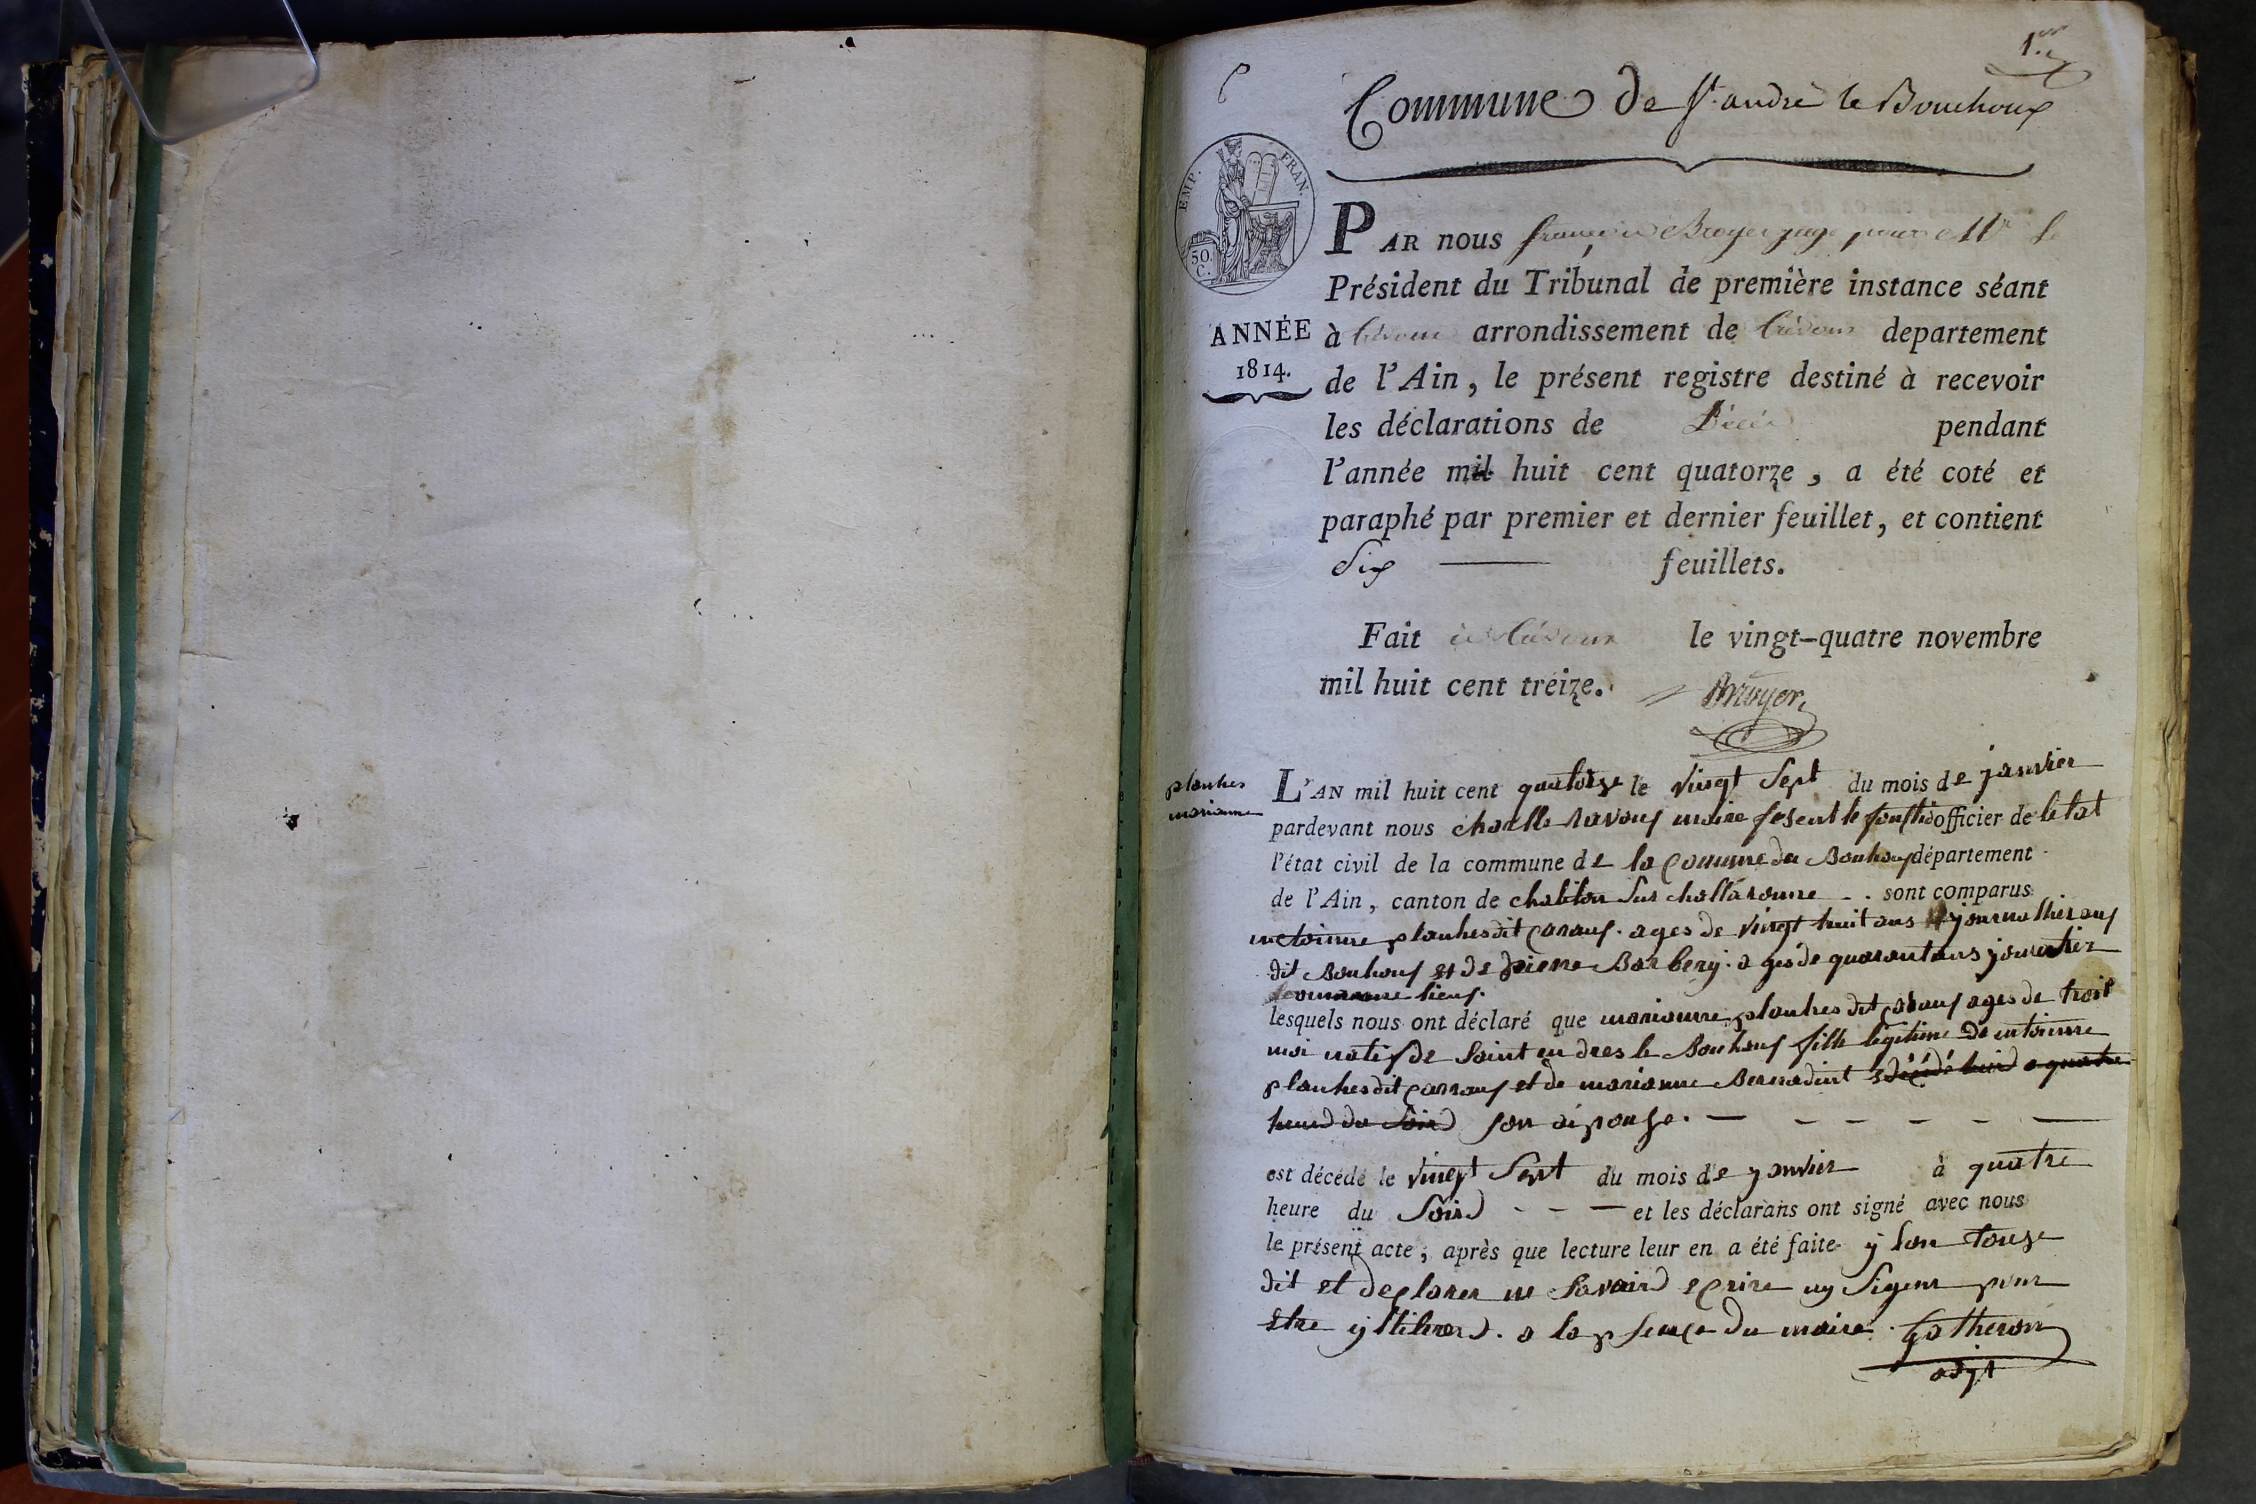 1.er
Commune de St. andré le Bouchoux
EMP. FRAN.
50 C.
ANNÉE
1814.
PAR nous françois Bruyer juge pour Mr le
Président du Tribunal de première instance séant
à trévoux arrondissement de trévoux departement
de l'Ain, le présent registre destiné à recevoir
les déclarations de Décès pendant
l'année mil huit cent quatorze, a été coté et
paraphé par premier et dernier feuillet, et contient
Six feuillets.
Fait à trévoux le vingt-quatre novembre
mil huit cent treize.
Bruyer
planhes
marianne
L'AN mil huit cent quatorze le vingt Sept du mois de janvier
pardevant nous maire fesent le officier de letat
l'état civil de la commune de la comune du Bouhouf département
de l'Ain, canton de chatilon Sur challaronne sont comparus
entoinne planhes dit caraux. ages de vingt huit ans journallier auf
dit Bouhouf et de pierre Barbery. ages de quarantans
lieuf.
lesquels nous ont déclaré que marianne planhes dit caraux ages de trois
moi natif de Saint endres le Bouhouf fille legitime de entoinne
planhes dit carrauf et de marianne Bernadint décédé a quatre
heurd du Soird son aiponse.
est décédé le vingt Sept du mois de janvier à quatre
heure du Soird et les déclarans ont signé avec nous
le présent acte, après que lecture leur en a été faite y lon touse
dit et declarer ne Savoird ecrire ny Signer pour
etre a la psence du maire. Gatheron
adjt